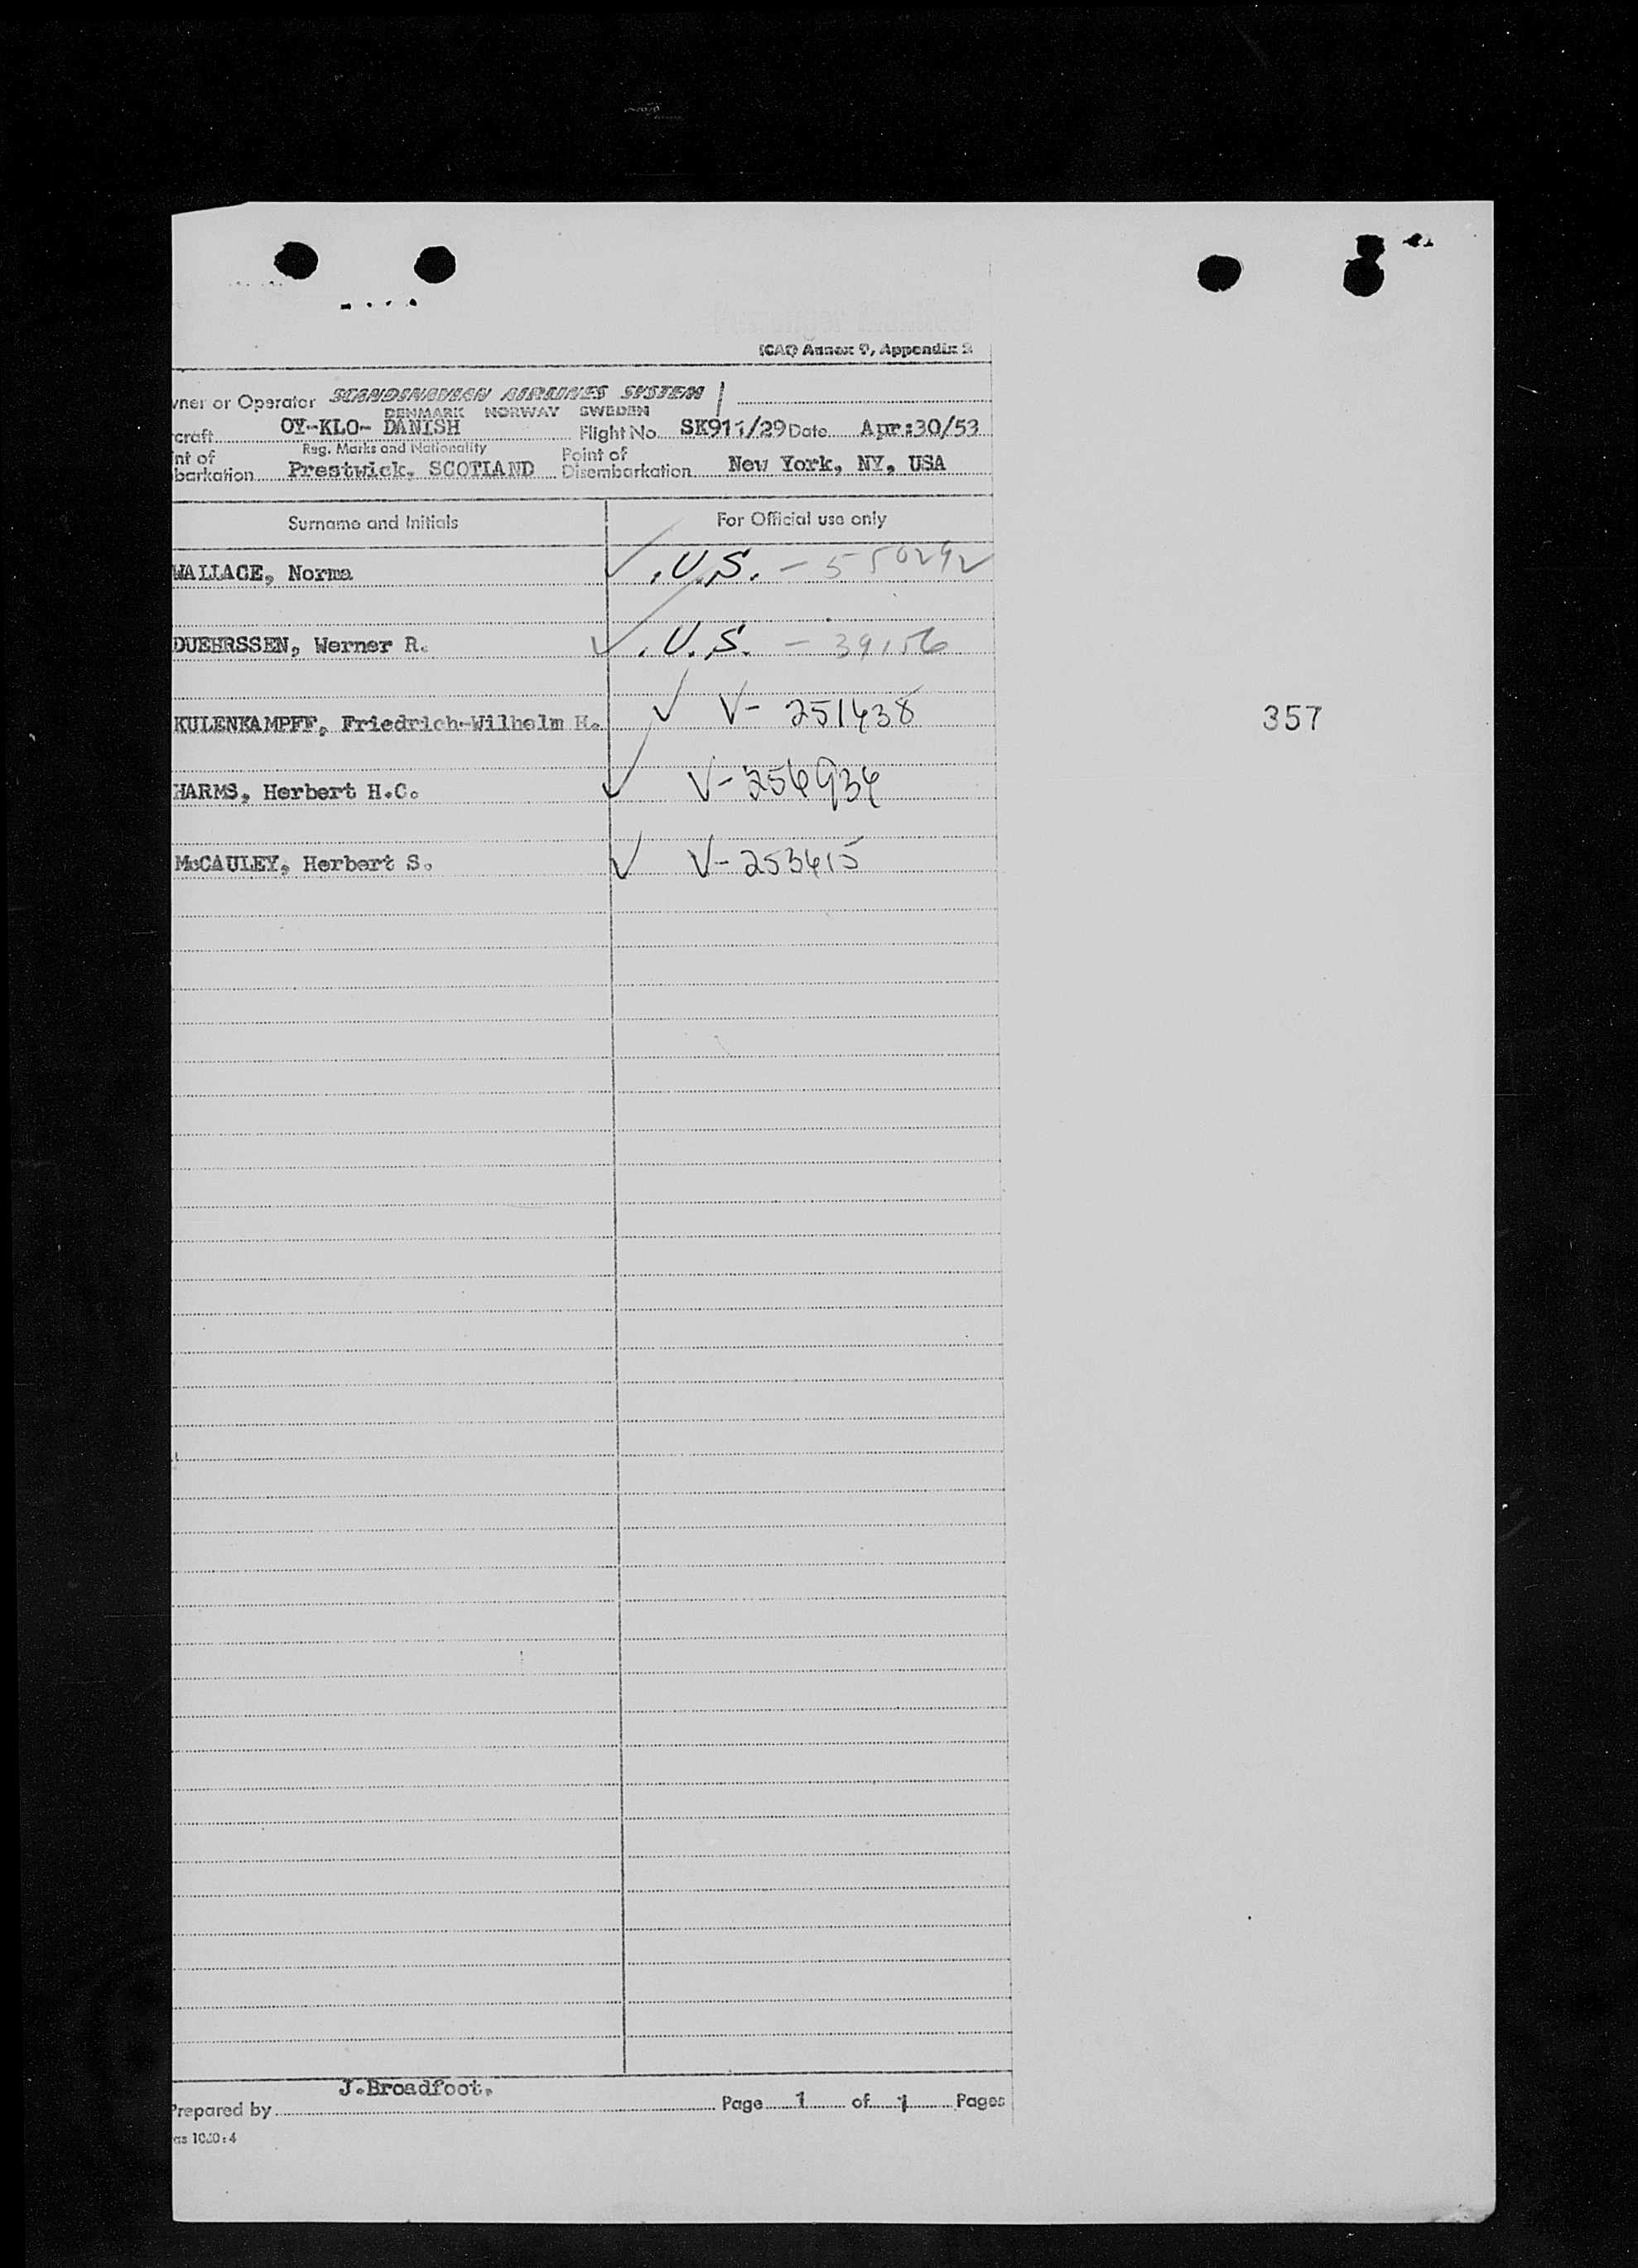 ICAO Annex 9, Appendix 2
wner or Operator SCANDINAVIAN AIRLINES SYSTEM
DENMARK NORWAY SWEDEN
craft OY-KLO- DANISH Flight No. SK911/29 Date Apr:30/53
Reg. Marks and Nationality
nt of barkation Prestwick, SCOTLAND Point of Disembarkation New York, NY, USA
Surname and Initials For Official use only
WALLACE, Norma ✓ .U.S. - 550292
DUEHRSSEN, Werner R. ✓ .U.S. - 39156
KULENKAMPFF, Friedrich-Wilhelm H. ✓ V- 251438
357
HARMS, Herbert H.C. ✓ V-256936
McCAULEY, Herbert S. ✓ V-253615
J.Broadfoot.
Prepared by Page 1 of 1 Pages
as 1060:4